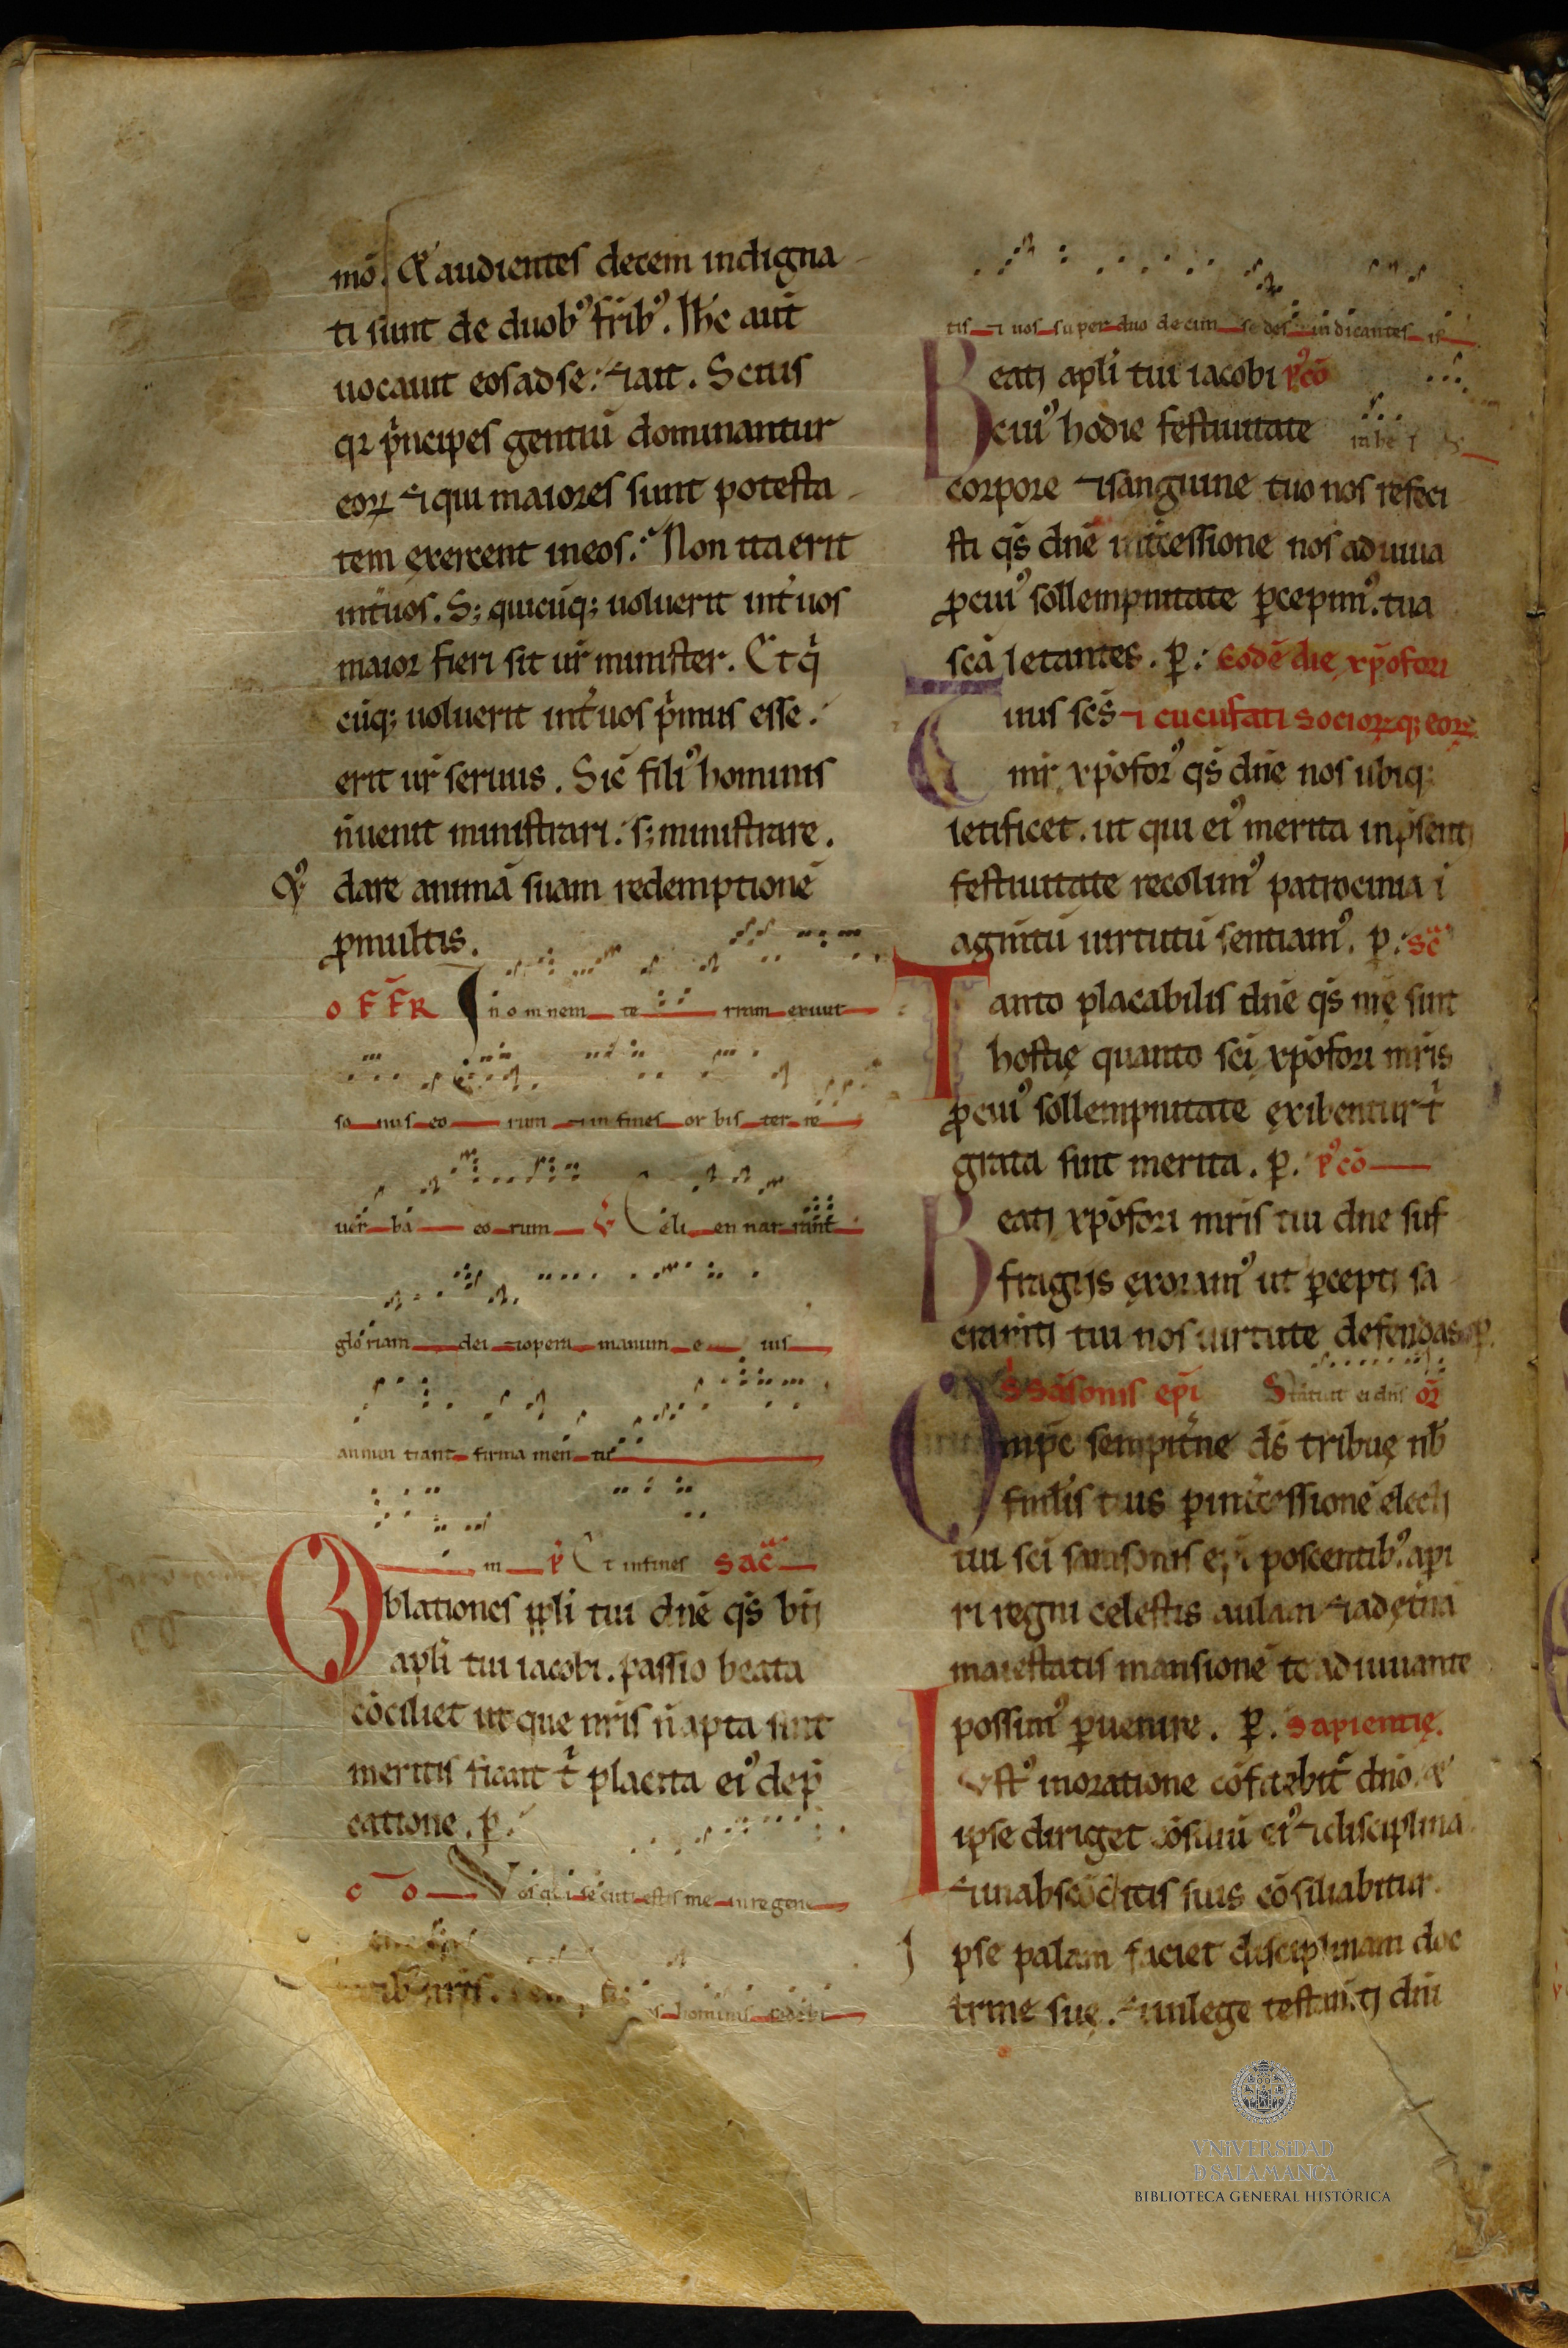 mō. & audientes decem indigna
ti sunt de duobꝰ frībꝰ. Ihc aut̄
uocauit eos ad se: ⁊ ait. Scitis
qꝛ p̄ncipes gentiū dominantur
eoꝝ ⁊ qui maiores sunt potesta
tem exercent in eos. Non ita erit
int̄ uos. S; quicūq; uoluerit int̄ uos
maior fieri sit ur̄ minister. Et q̄
cūq; uoluerit int̄ uos p̄mus esse.
erit ur̄ seruus. Sic̄ filiꝰ hominis
n̄ uenit ministrari. s; ministrare.
& dare animā suam redemptionē
ꝓ multis.
OFFR In omnem te rram exiuit
so nus eo rum ⁊ in fines or bis ter re
uer ba eo rum ℣ Celi en nar rant
gloriam dei ⁊ opera manum e ius
annun tiant firma men tu
m ℣ Et in fines Sac̄
Oblationes ppli tui dn̄e qs̄ bt̄i
apli tui iacobi. passio beata
cōciliet ut que nr̄is n̄ apta sunt
meritis fiant t̄ placita eiꝰ dep̄
catione. p.
CO Vos qui secuti estis me in regene
hominis sederi
tis ⁊ uos super duo decim sedes iudicantes
Beati apli tui iacobi pꝰcō
cuiꝰ hodie festiuitate
corpore ⁊ sanguine tuo nos refeci
sti qs̄ dn̄e int̄cessione nos adiuua
ꝓ cuiꝰ sollempnitate ꝑcepimꝰ. tua
scā letantes. p. Eodē die xp̄ofori
tuus scs̄ ⁊ cucufati socioꝝq; eoꝝ
mr̄ xp̄oforꝰ qs̄ dn̄e nos ubiq;
letificet. ut qui eiꝰ merita in p̄senti
festiuitate recolimꝰ patrocinia i
agnitū uirtutū sentiamꝰ. p. Sc̄
Tanto placabilis dn̄e qs̄ nr̄ę sint
hostię quanto sc̄i xp̄ofori mr̄is
ꝓ cuiꝰ sollempnitate exibentur t̄
grata sint merita. p. pꝰcō
Beati xp̄ofori mr̄is tui dn̄e suf
fragijs exoramꝰ ut ꝑcepti sa
cram̄ti tui nos uirtute defendas. p.
S Sāsonis epi Statuit ei dn̄s oꝝ
Omp̄c sempit̄ne ds̄ tribue nb̄
famlis tuis ꝑ int̄cessionē electi
tui sc̄i samsonis epi poscentibꝰ. api
ri regni celestis aulam ⁊ ad et̄nā
maiestatis mansionē te adiuuante
possimꝰ ꝑuenire. p. Sapientię.
Iustꝰ in oratione cōfitebit̄ dn̄o. &
ipse diriget cōsiliū eiꝰ ⁊ disciplina
⁊ in abscōditis suis cōsiliabitur.
Ipse palam faciet disciplinam doc
trine suę. ⁊ in lege testam̄ti dn̄i
VNiVERSiDAD
Đ SALAMANCA
BIBLIOTECA GENERAL HISTÓRICA